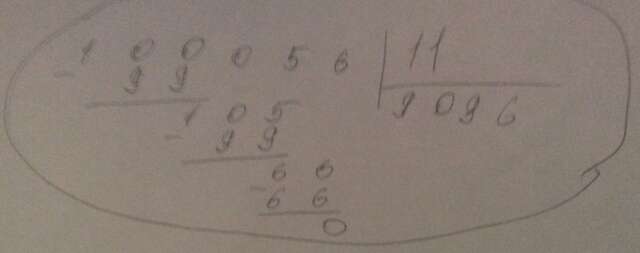 - 1 0 0 0 5 6 | 11
9 9
9 0 9 6
- 1 0 5
9 9
6 6
- 6 6
0